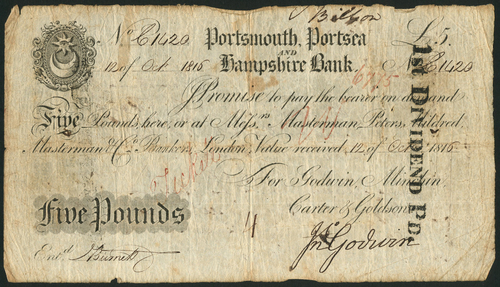 Billson £5.
No. C1420 Portsmouth, Portsea No. C1420
AND
12 of Oct 1815 Hampshire Bank.
I Promise to pay the bearer on demand
Five Pounds, here, or at Messrs. Masterman, Peters, Mildred,
Masterman & Co. Bankers, London, Value received, 12 of Oct 1815
For Godwin, Minchin,
Carter & Goldson
Five Pounds
Jn Godwin
Entd. J Burnett
1st DIVIDEND PD.